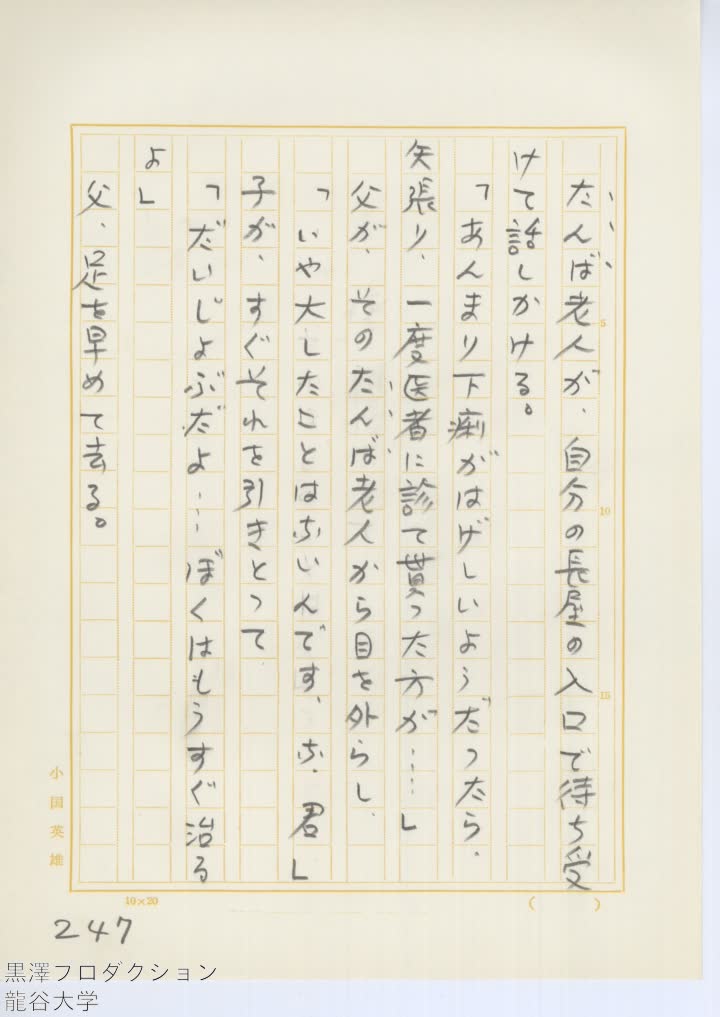 たんば老人が、自分の長屋の入口で待ち受
けて話しかける。
「あんまり下痢がはげしいようだったら、
矢張り、一度医者に診て貰った方が……」
父が、そのたんば老人から目を外らし、
「いや大したことはないんです、な、君」
子が、すぐそれを引きとって
「だいじょぶだよ……ぼくはもうすぐ治る
よ」
父、足を早めて去る。
5
10
15
小国英雄
10×20
(　　)
247
黒澤プロダクション
龍谷大学